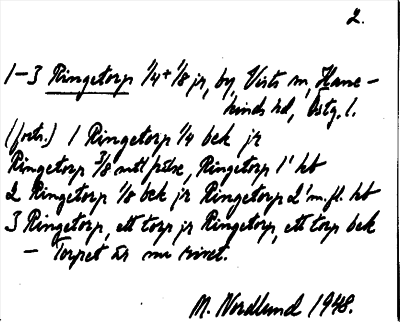 2.
1-3 Ringetorp 1/4 + 1/8 jr, by, Vists sn, Hane-
kinds hd, Östg. l.
(forts.) 1 Ringetorp 1/4 bek jr
Ringetorp 3/8 mtl frälse, Ringetorp 1' kb
2 Ringetorp 1/8 bek jr Ringetorp 2' m. fl. kb
3 Ringetorp, ett torp jr Ringetorp, ett torp bek
- Torpet är nu rivet.
M. Nordlund 1948.